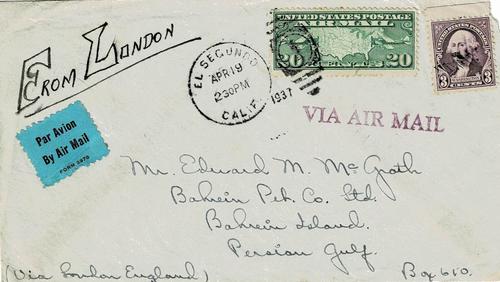 From London
EL SEGUNDO
APR 19
230PM
1937
CALIF.
UNITED STATES POSTAGE
AIR MAIL
20 20
3 3
CENTS
VIA AIR MAIL
Par Avion
By Air Mail
FORM 2978
Mr. Edward M. McGrath
Bahrein Pet. Co. Ltd.
Bahrein Island.
Persian Gulf.
(Via London England)
Box 610.